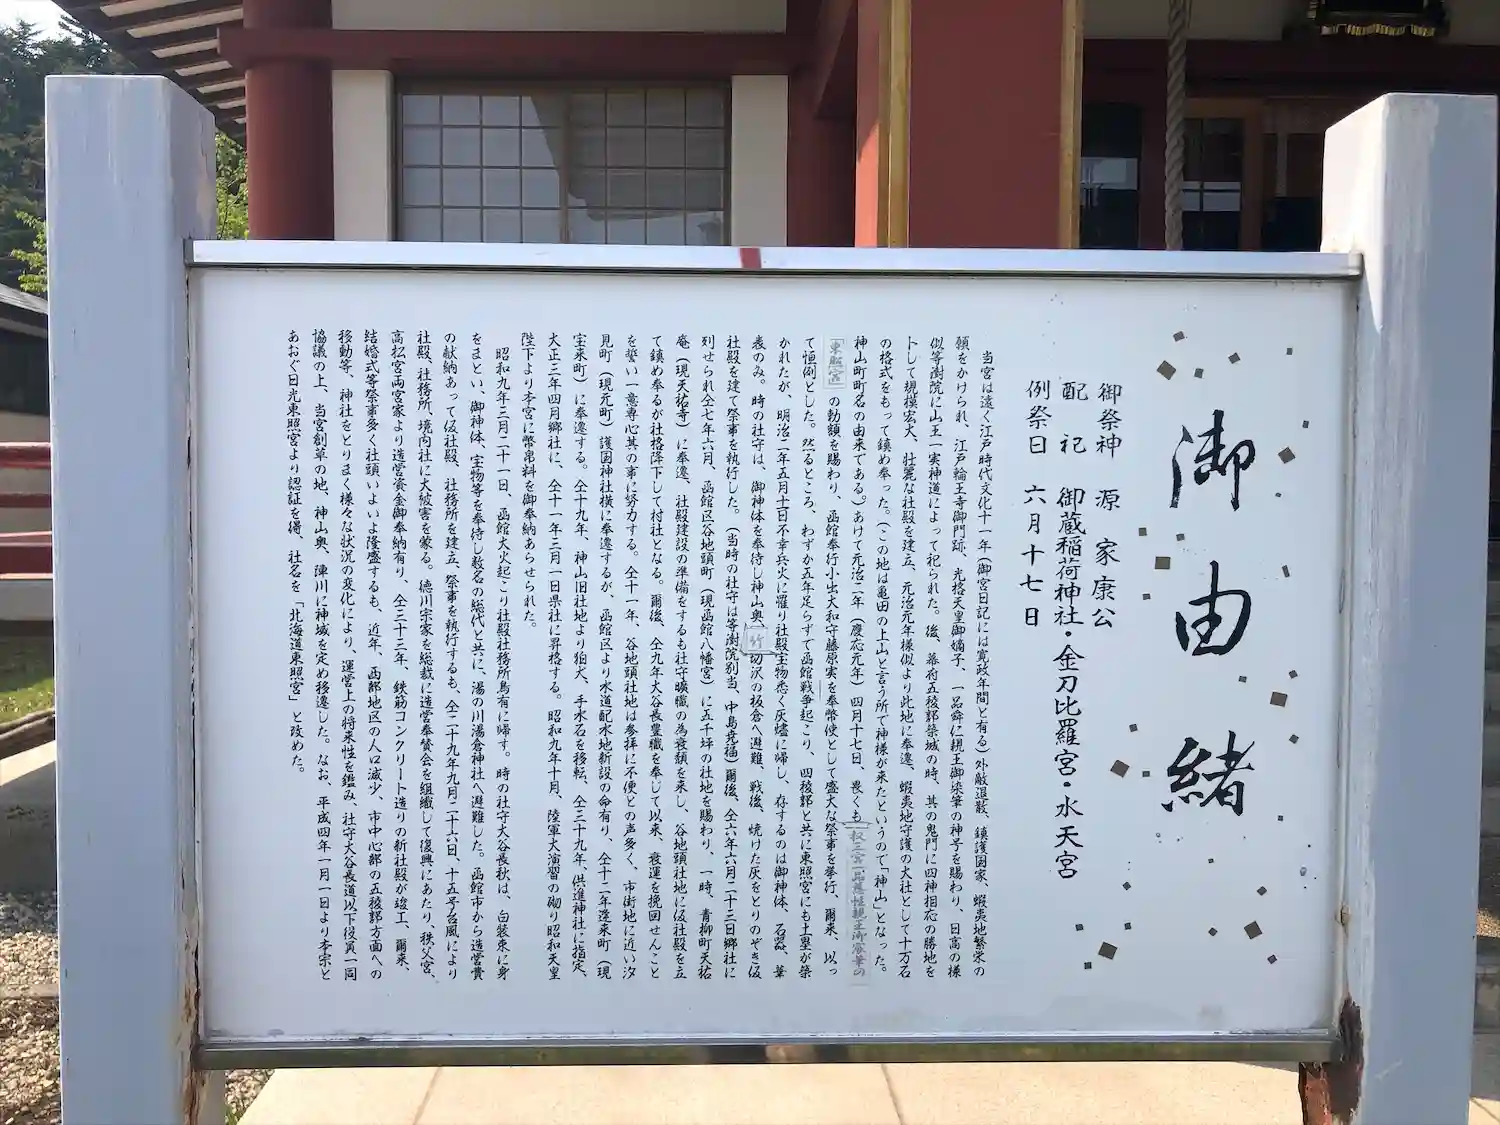 御由緒
御祭神　源　家康公
配　祀　御蔵稲荷神社・金刀比羅宮・水天宮
例祭日　六月十七日
当宮は遠く江戸時代文化十一年（御宮日記には寛政年間と有る）外敵退散、鎮護国家、蝦夷地繁栄の
願をかけられ、江戸輪王寺御門跡、光格天皇御嫡子、一品舜仁親王御染筆の神号を賜わり、日高の様
似等澍院に山王一実神道によって祀られた。後、幕府五稜郭築城の時、其の鬼門に四神相応の勝地を
卜して規模宏大、壮麗な社殿を建立、元治元年様似より此地に奉遷、蝦夷地守護の大社として十万石
の格式をもって鎮め奉った。（この地は亀田の上山と言う所で神様が来たというので「神山」となった。
神山町町名の由来である。）あけて元治二年（慶応元年）四月十七日、畏くも
「東照宮」の勅額を賜わり、函館奉行小出大和守藤原実を奉幣使として盛大な祭事を挙行、爾来、以っ
て恒例とした。然るところ、わずか五年足らずで函館戦争起こり、四稜郭と共に東照宮にも土塁が築
かれたが、明治二年五月十日不幸兵火に罹り社殿宝物悉く灰燼に帰し、存するのは御神体、石器、華
表のみ。時の社守は、御神体を奉侍し神山奥、竹切沢の板倉へ避難、戦後、焼けた灰をとりのぞき仮
社殿を建て祭事を執行した。（当時の社守は等澍院別当、中島堯福）爾後、仝六年六月二十三日郷社に
列せられ仝七年六月、函館区谷地頭町（現函館八幡宮）に五千坪の社地を賜わり、一時、青柳町天祐
庵（現天祐寺）に奉遷、社殿建設の準備をするも社守曠職の為衰頽を来し、谷地頭社地に仮社殿を立
て鎮め奉るが社格降下して村社となる。爾後、仝九年大谷長豊職を奉じて以来、衰運を挽回せんこと
を誓い一意専心其の事に努力する。仝十一年、谷地頭社地は参拝に不便との声多く、市街地に近い汐
見町（現元町）護国神社横に奉遷するが、函館区より水道配水地新設の命有り、仝十二年蓬来町（現
宝来町）に奉遷する。仝十九年、神山旧社地より狛犬、手水石を移転、仝三十九年、供進神社に指定、
大正三年四月郷社に、仝十一年三月一日県社に昇格する。昭和九年十月、陸軍大演習の砌り昭和天皇
陛下より本宮に幣帛料を御奉納あらせられた。
昭和九年三月二十一日、函館大火起こり社殿社務所烏有に帰す。時の社守大谷長秋は、白装束に身
をまとい、御神体、宝物等を奉侍し数名の総代と共に、湯の川湯倉神社へ避難した。函館市から造営費
の献納あって仮社殿、社務所を建立、祭事を執行するも、仝二十九年九月二十六日、十五号台風により
社殿、社務所、境内社に大被害を蒙る。徳川宗家を総裁に造営奉賛会を組織して復興にあたり秩父宮、
高松宮両宮家より造営資金御奉納有り、仝三十三年、鉄筋コンクリート造りの新社殿が竣工、爾来、
結婚式等祭事多く社頭いよいよ隆盛するも、近年、西部地区の人口減少、市中心部の五稜郭方面への
移動等、神社をとりまく様々な状況の変化により、運営上の将来性を鑑み、社守大谷長道以下役員一同
協議の上、当宮創草の地、神山奥、陣川に神域を定め移遷した。なお、平成四年一月一日より本宗と
あおぐ日光東照宮より認証を得、社名を「北海道東照宮」と改めた。